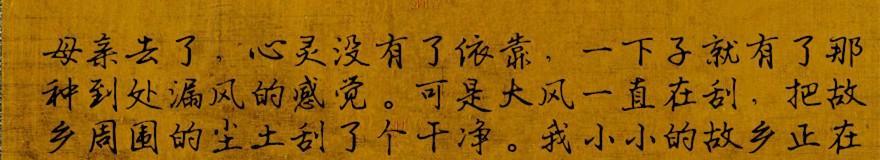 母亲去了，心灵没有了依靠，一下子就有了那
种到处漏风的感觉。可是大风一直在刮，把故
乡周围的尘土刮了个干净。我小小的故乡正在